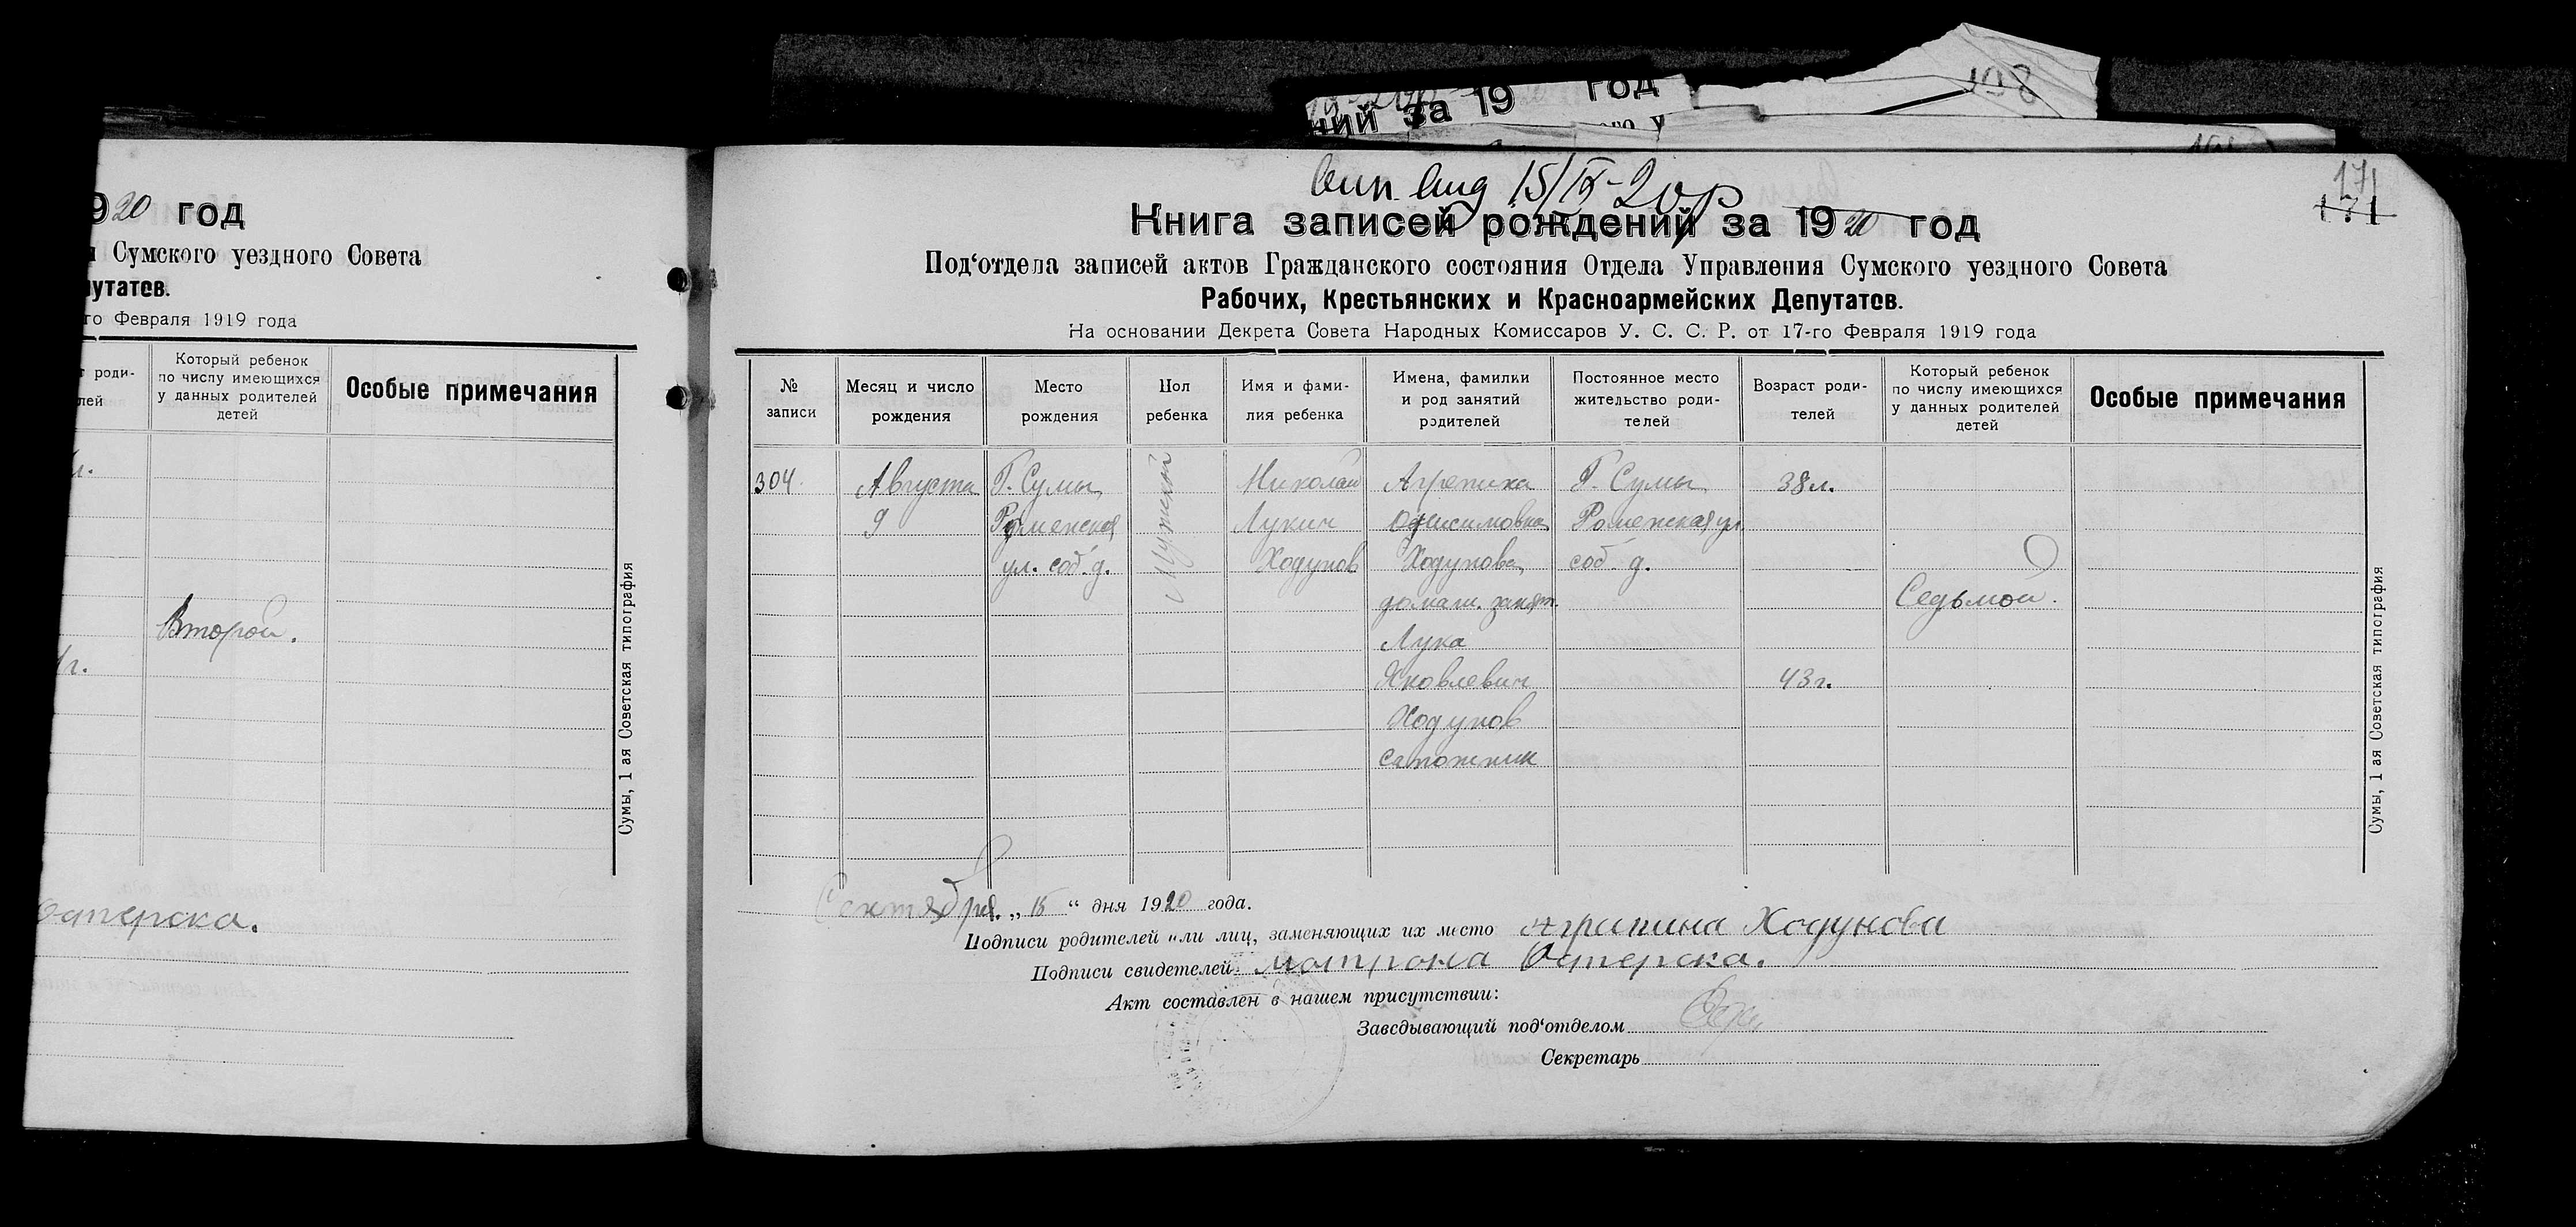 ний за 19 год
198
920 год
Сумского уездного Совета
путатов.
го Февраля 1919 года
роди-
лей
Который ребенок
по числу имеющихся
у данных родителей
детей
Особые примечания
Второй.
Сумы, 1 ая Советская типография
15/IX-20 р
171
171
Книга записей рождений за 1920 год
Под‘отдела записей актов Гражданского состояния Отдела Управления Сумского уездного Совета
Рабочих, Крестьянских и Красноармейских Депутатов.
На основании Декрета Совета Народных Комиссаров У. С. С. Р. от 17-го Февраля 1919 года
№
записи
Месяц и число
рождения
Место
рождения
Пол
ребенка
Имя и фами-
лия ребенка
Имена, фамилии
и род занятий
родителей
Постоянное место
жительство роди-
телей
Возраст роди-
телей
Который ребенок
по числу имеющихся
у данных родителей
детей
Особые примечания
304.
Августа
9
Г. Сумы
Роменская
ул. соб. д.
Мужской
Николай
Лукич
Ходунов
Агрепина
Онисимовна
Ходунова
домаш. занят.
Лука
Яковлевич
Ходунов
сапожник
Г. Сумы
Роменская ул
соб. д.
38 л.
43 г.
Седьмой.
Сумы, 1 ая Советская типография
Сентября „15“ дня 1920 года.
Подписи родителей или лиц, заменяющих их место Агрипина Ходунова
Подписи свидетелей: Мотрона
Акт составлен в нашем присутствии:
Заведывающий под‘отделом
Секретарь